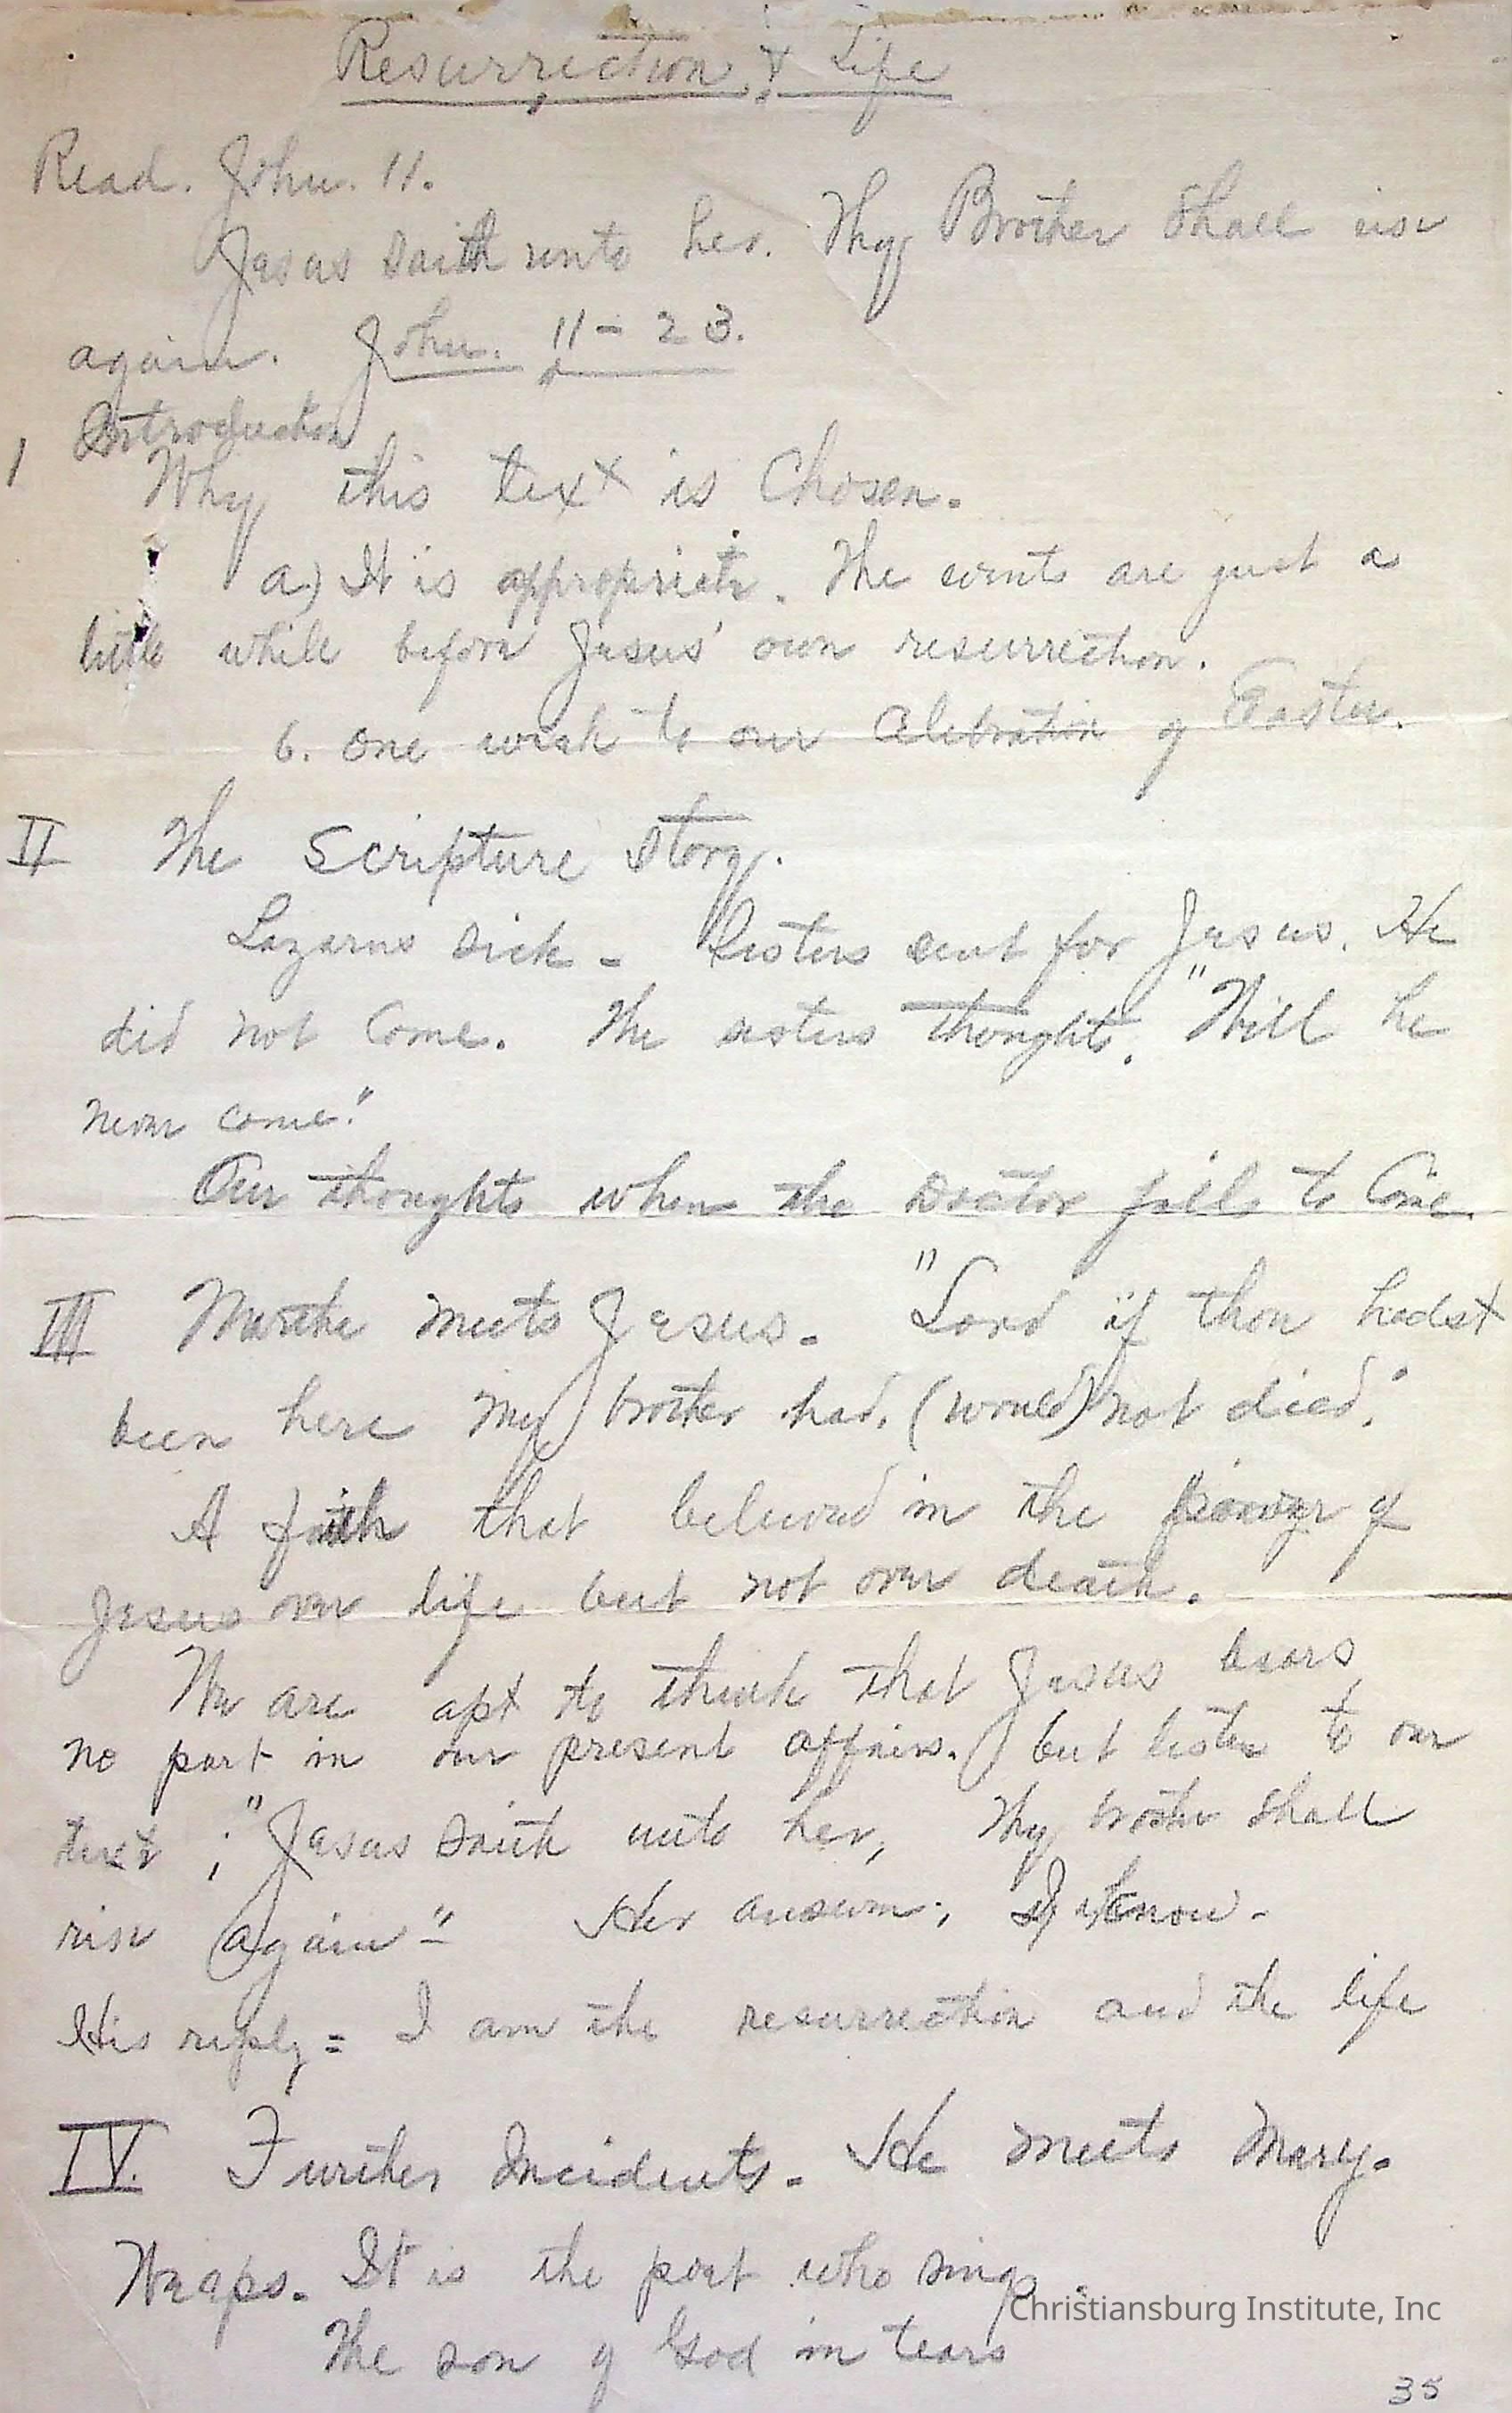 Resurrection & Life
Read. John. 11.
Jesus saith unto her. Thy Brother Shall rise
again. John. 11-23.
Introduction
1 Why this text is Chosen.
a) It is appropriate. The events are just a
little while before Jesus' own resurrection.
b. One week to our Celebration of Easter.
II The Scripture Story.
Lazarus sick - Sisters sent for Jesus. He
did not Come. The sisters thought. "Will he
never come."
Our thoughts when the Doctor fails to Come.
III Martha meets Jesus. "Lord if thou hadst
been here my brother had. (would) not died."
A faith that believed in the power of
Jesus over life but not over death.
We are apt to think that Jesus bears
no part in our present affairs. but listen to our
text; "Jesus saith unto her, Thy brother shall
rise again" - Her answer; I know -
His reply = I am the resurrection and the life
IV. Further Incidents. He meets Mary.
Weeps. It is the poet who sings.
The son of God in tears
Christiansburg Institute, Inc
35